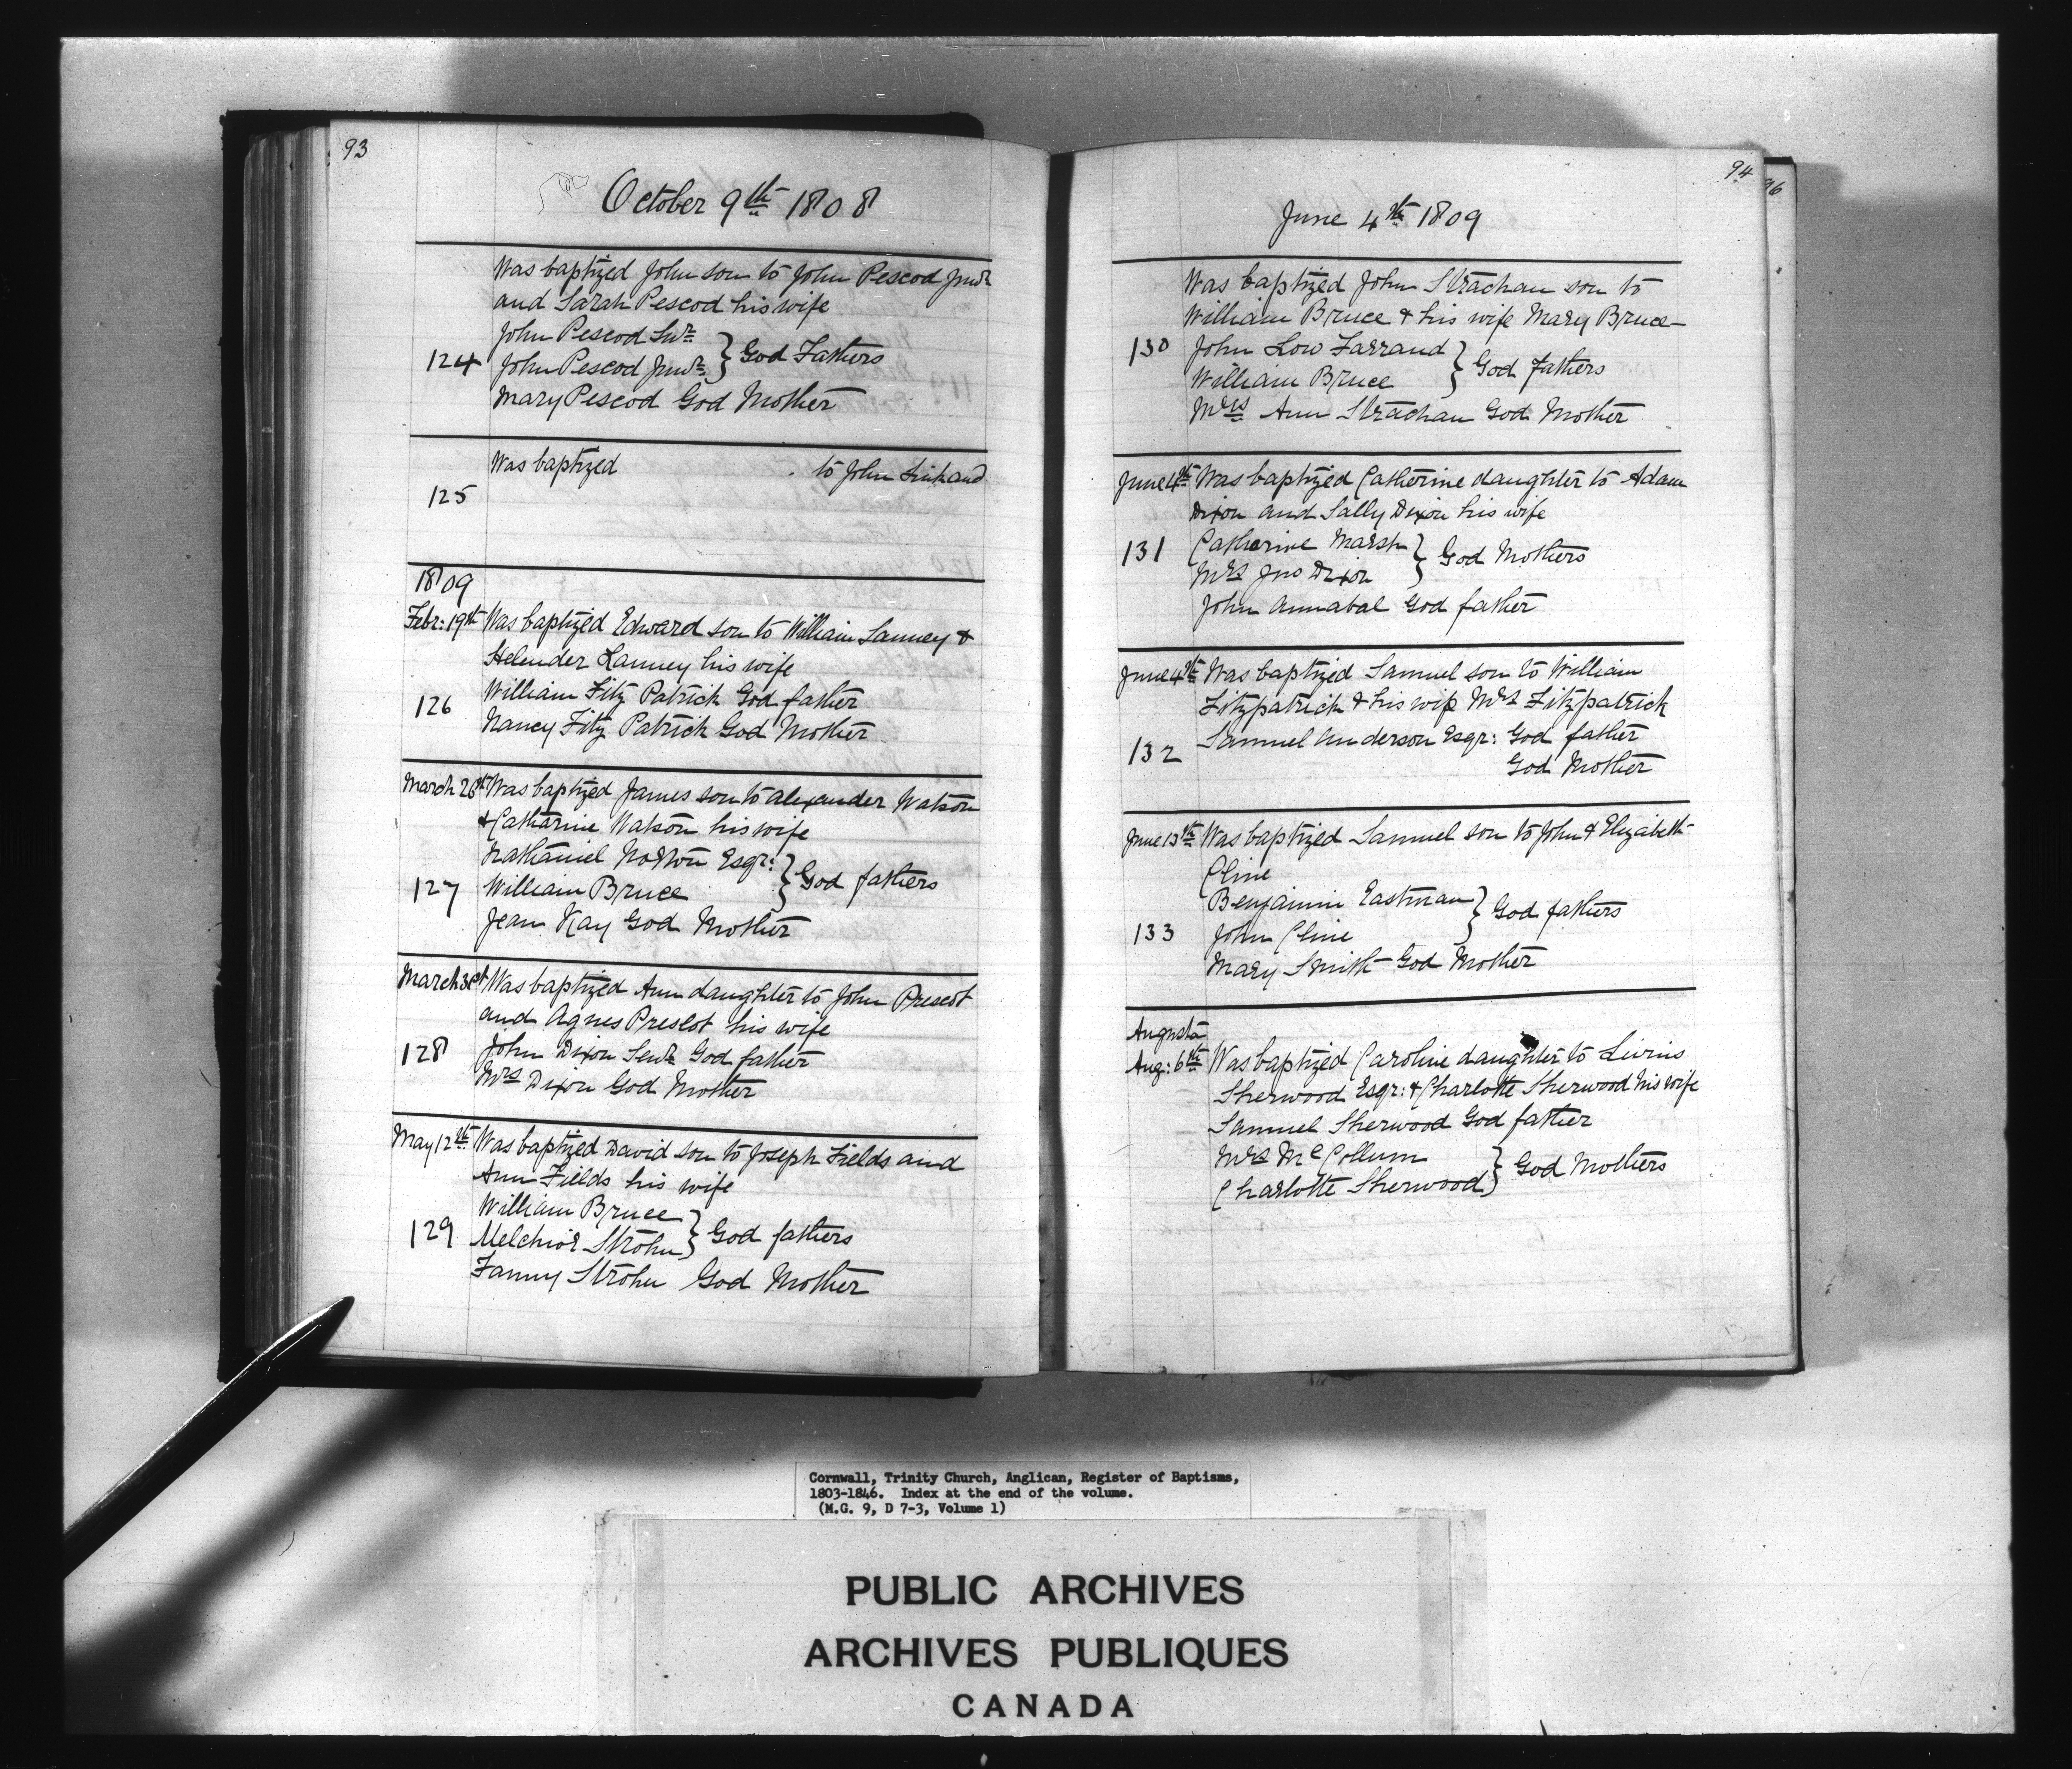 93
October 9th 1808
Was baptized John son to John Pescod Junr
and Sarah Pescod his wife
John Pescod Snr
124 John Pescod Junr } God Fathers
Mary Pescod God Mother
Was baptized . to John Link and
125
1809
Febr: 19th Was baptized Edward son to William Lanney &
Helender Lanney his wife
126 William Fitz Patrick God father
Nancy Fitz Patrick God Mother
March 26th Was baptized James son to Alexander Watson
& Catharine Watson his wife
Nathaniel Norton Esqr:
127 William Bruce } God fathers
Jean Kay God Mother
March 31st Was baptized Ann daughter to John Prescot
and Agnes Prescot his wife
128 John Dixon Senr God father
Mrs Dixon God Mother
May 12th Was baptized David son to Joseph Fields and
Ann Fields his wife
William Bruce
129 Melchior Strohn } God fathers
Fanny Strohn God Mother
94
96
June 4th 1809
Was baptized John Strachan son to
William Bruce & his wife Mary Bruce
130 John Low Farrand
William Bruce } God fathers
Mrs Ann Strachan God Mother
June 4th Was baptized Catherine daughter to Adam
Dixon and Sally Dixon his wife
131 Catherine Marsh
Mrs Jno Dixon } God Mothers
John Annabal God father
June 4th Was baptized Samuel son to William
Fitzpatrick & his wife Mrs Fitzpatrick
132 Samuel Anderson Esqr: God father
God Mother
June 13th Was baptized Samuel son to John & Elizabeth
Cline
Benjamin Eastman
133 John Cline } God fathers
Mary Smith God Mother
Augusta
Aug: 6th Was baptized Caroline daughter to Livius
Sherwood Esqr: & Charlotte Sherwood his wife
Samuel Sherwood God father
Mrs McCollum
Charlotte Sherwood } God Mothers
Cornwall, Trinity Church, Anglican, Register of Baptisms,
1803-1846. Index at the end of the volume.
(M.G. 9, D 7-3, Volume 1)
PUBLIC ARCHIVES
ARCHIVES PUBLIQUES
CANADA